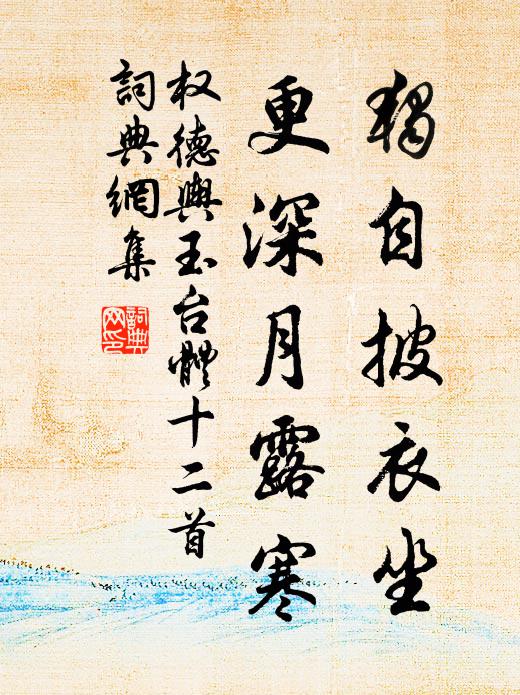 獨自披衣坐
更深月露寒
权德輿玉台體十二首
詞典網集
詞典
网印